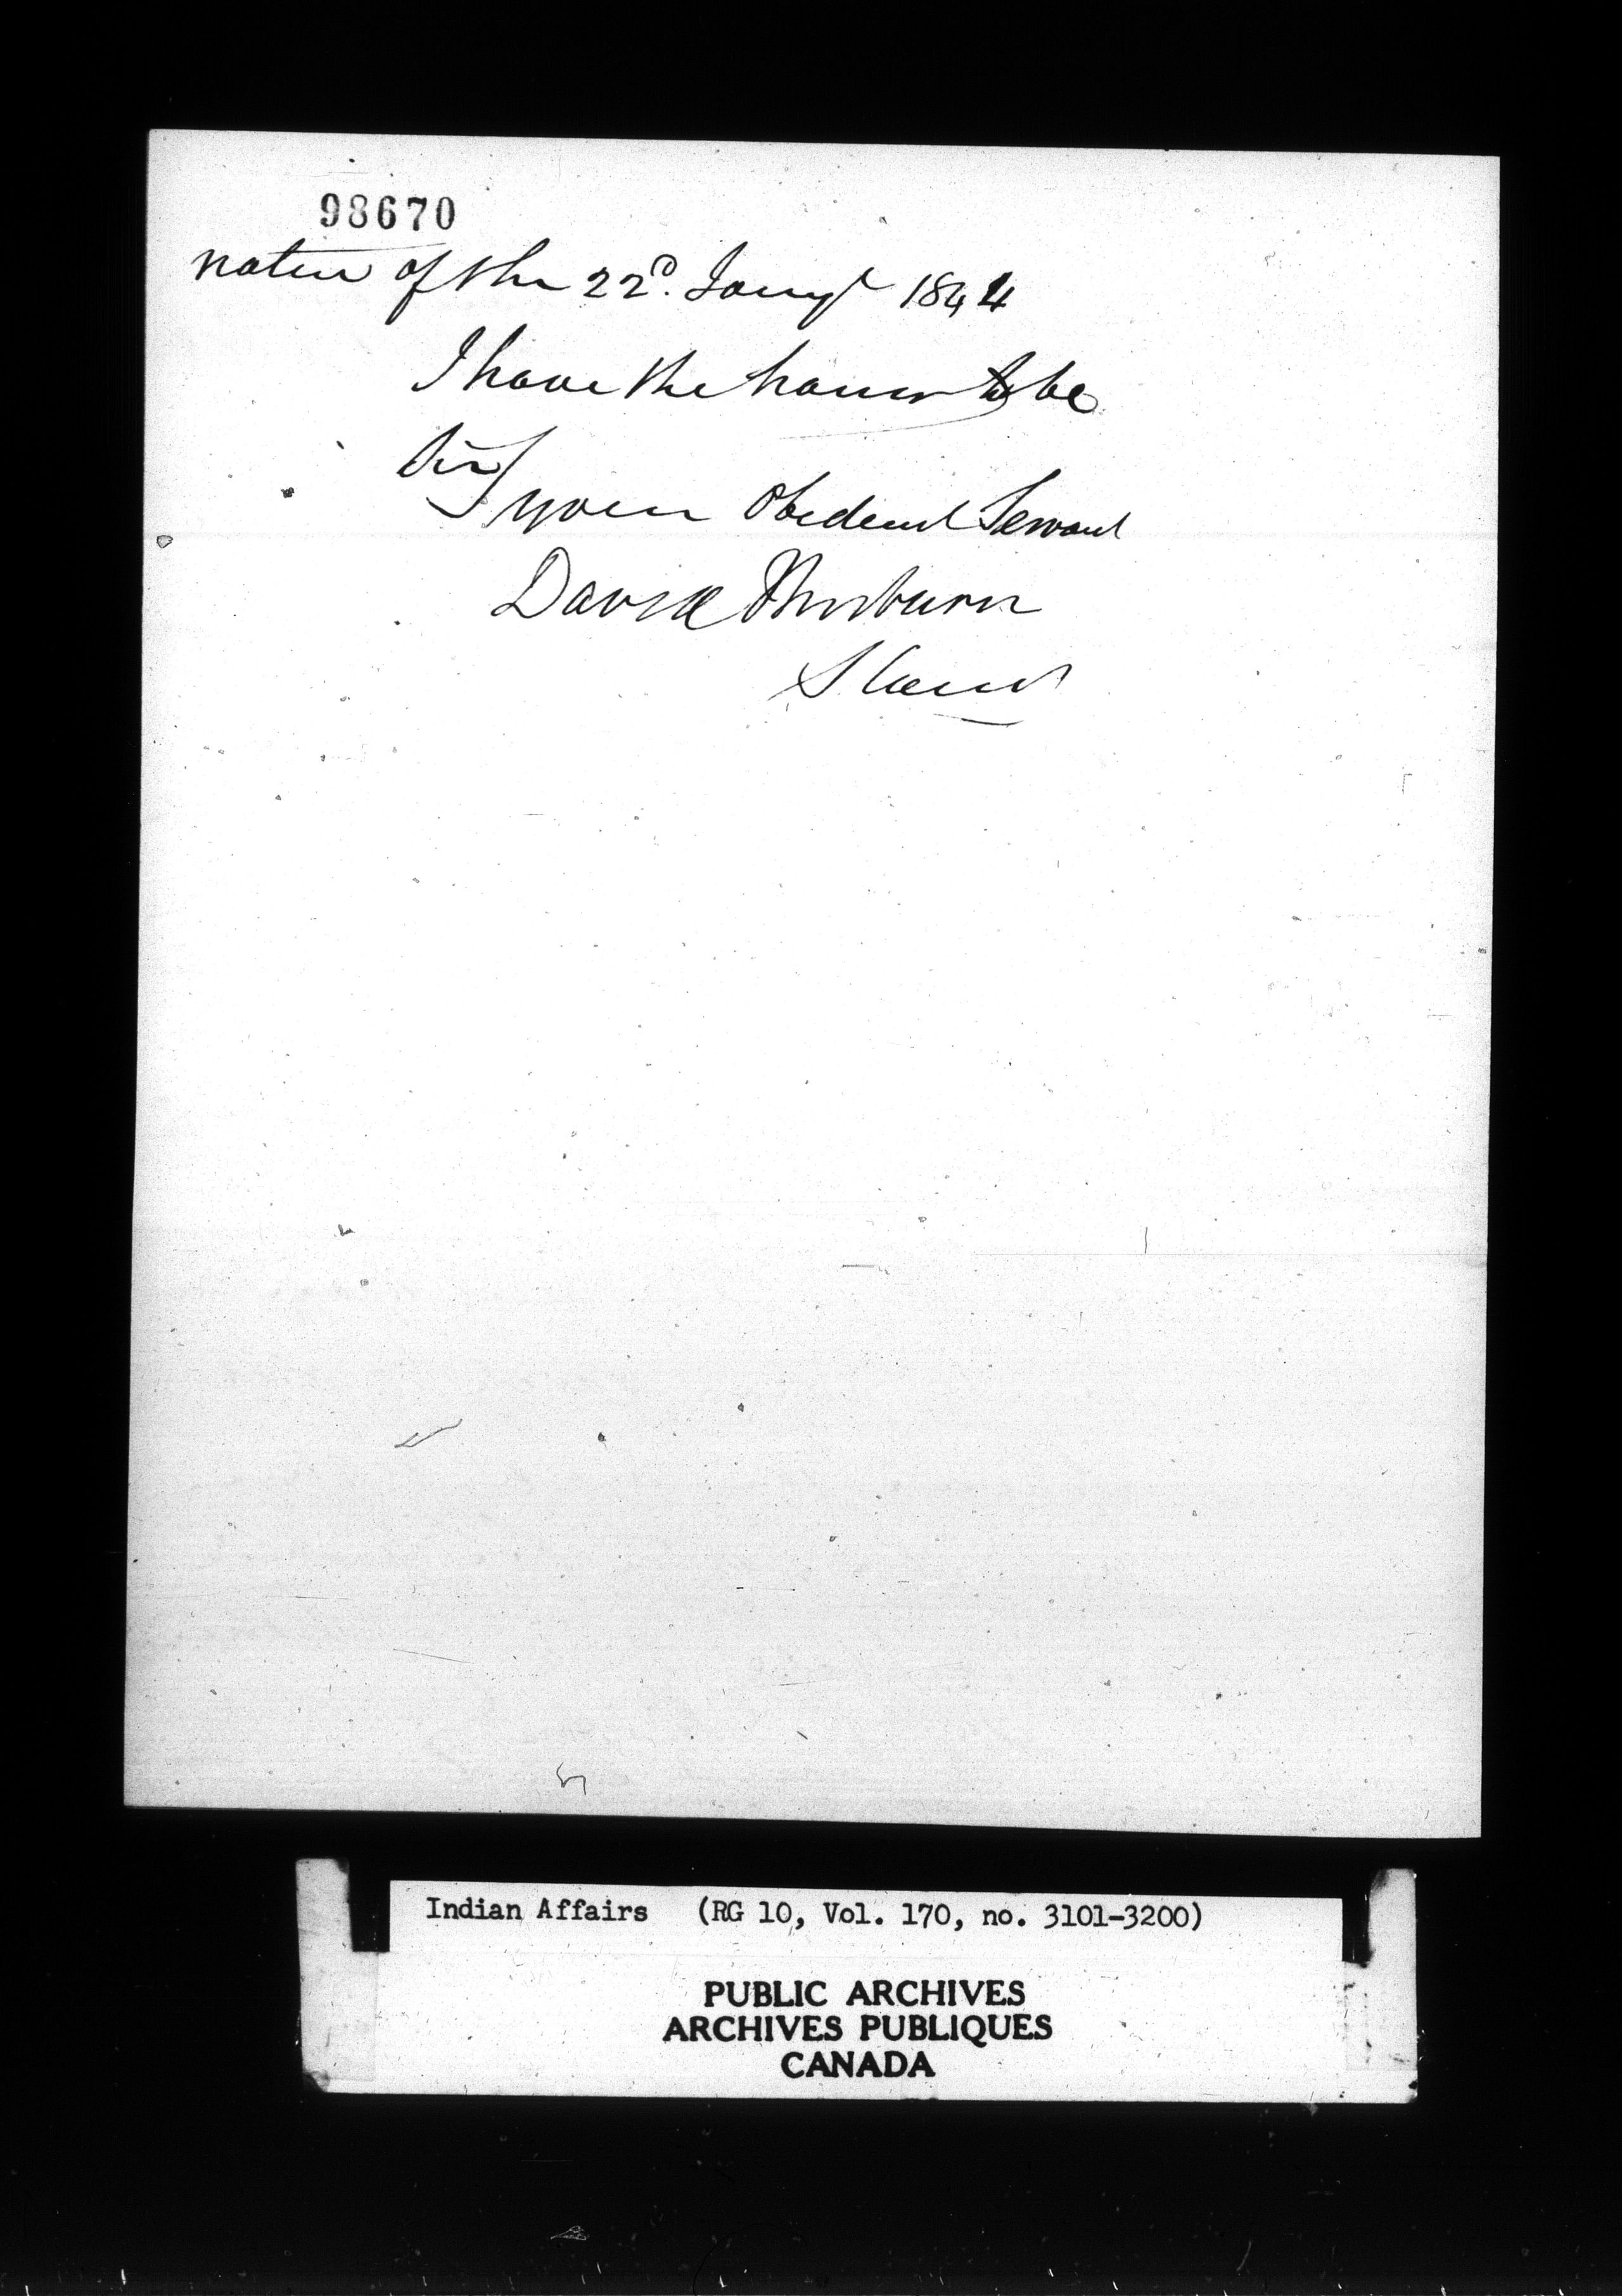 98670
notice of the 22ᴰ. Jany 1844
I have the honor to be
Sir
your Obedient Servant
David Thorburn
Indian Affairs (RG 10, Vol. 170, no. 3101-3200)
PUBLIC ARCHIVES
ARCHIVES PUBLIQUES
CANADA